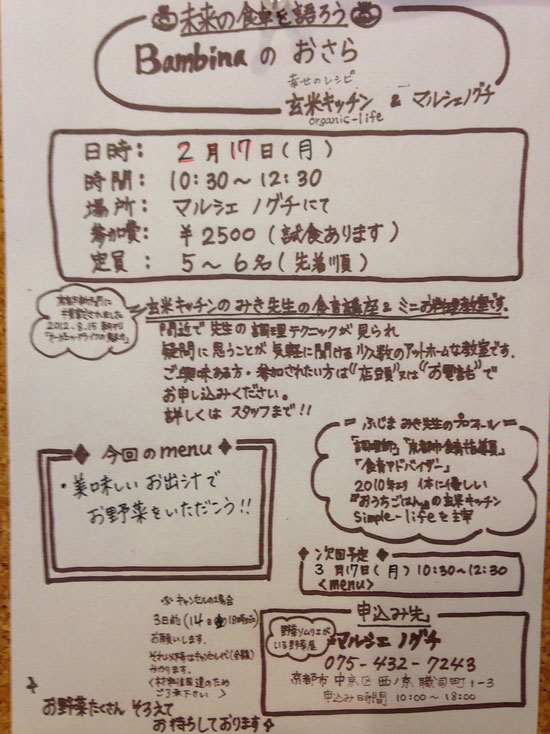 未来の食卓を語ろう
Bambinaのおさら
幸せのレシピ
玄米キッチン & マルシェノグチ
organic-life
日時: 2月17日(月)
時間: 10:30〜12:30
場所: マルシェ ノグチにて
参加費: ¥2500(試食あります)
定員: 5〜6名(先着順)
2012.8.15
玄米キッチンのみき先生の食育講座&ミニお料理教室です。
間近で先生の調理テクニックが見られ
疑問に思うことが気軽に聞ける少人数のアットホームな教室です。
ご興味ある方・参加されたい方は"店頭"又は"お電話"で
お申し込みください。
詳しくはスタッフまで!!
今回のmenu
・美味しいお出汁で
お野菜をいただこう!!
ふじまみき先生のプロフィール
「調理師」「京都市食育指導員」
「食育アドバイザー」
2010年より 体に優しい
『おうちごはん』の玄米キッチン
Simple-lifeを主宰
次回予定
3月17日(月)10:30〜12:30
<menu>
キャンセルの場合
3日前(14日金18時迄)
お願いします。
それ以降はキャンセル代(全額)
<材料は手配のため
ご了承下さい>
お野菜たくさん そろえて
お待ちしております
申込み先
野菜ソムリエが
いる野菜屋
マルシェ ノグチ
075-432-7243
京都市中京区西ノ京職司町1-3
申込み時間 10:00〜18:00